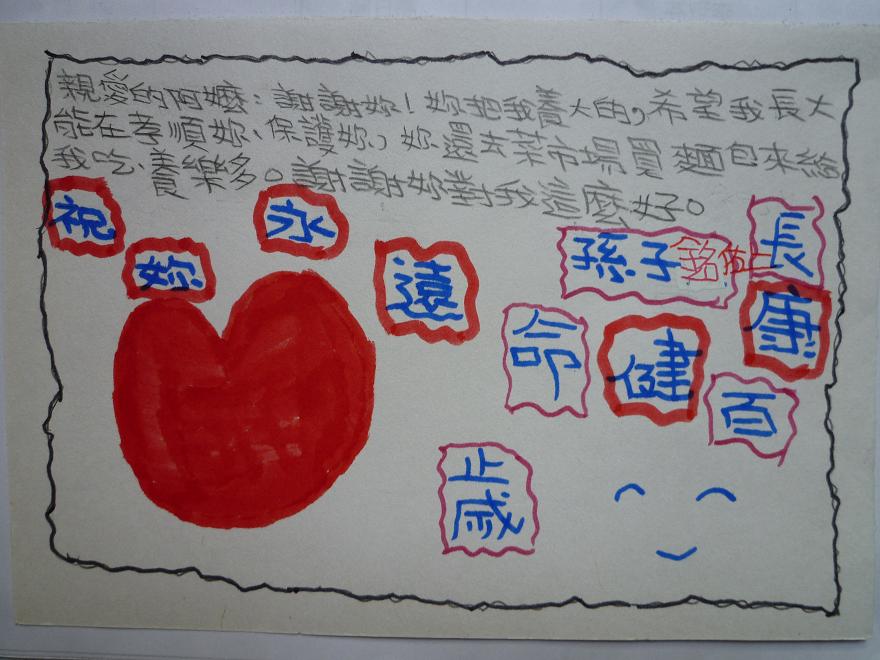 親愛的阿嬤：謝謝妳！妳把我養大的，希望我長大
能在孝順妳、保護妳，妳還去菜市場買麵包來給
我吃、養樂多。謝謝妳對我這麼好。
祝
妳
永
遠
健
康
長
命
百
歲
孫子銘